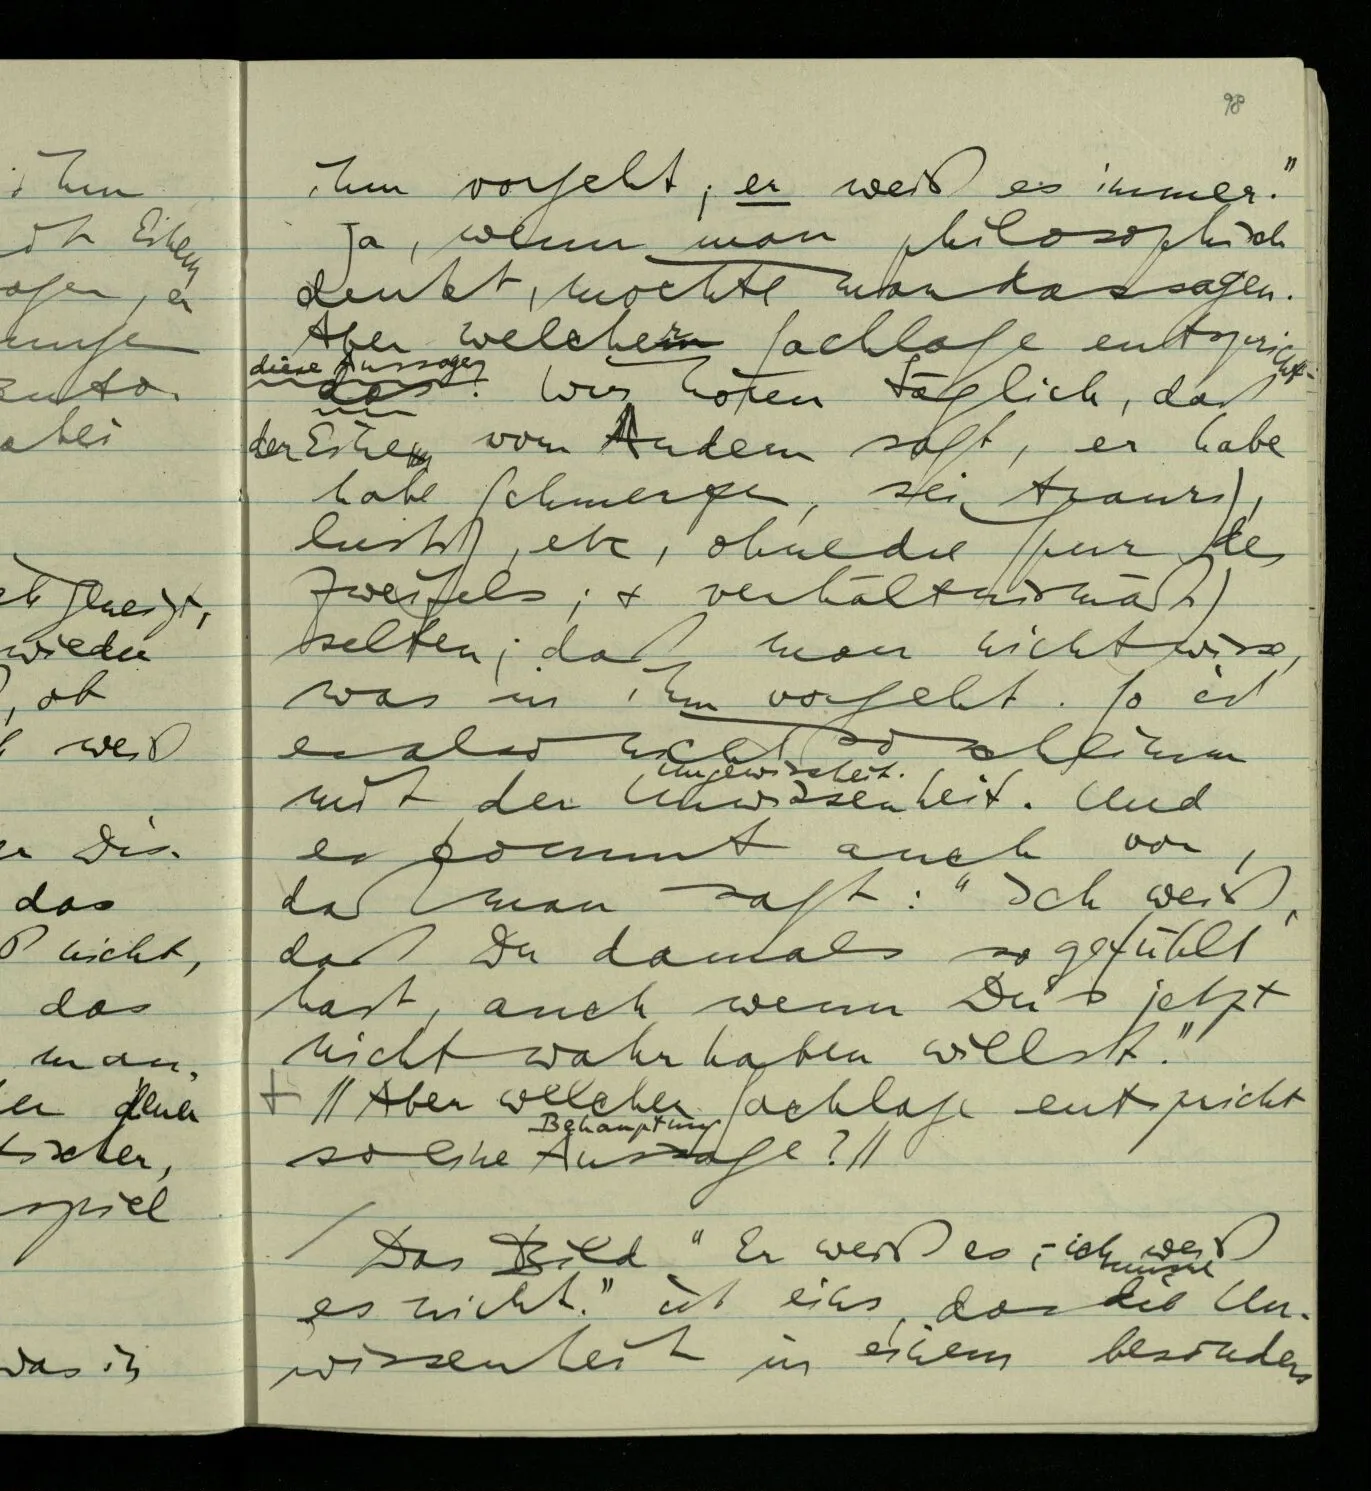 ihm
Einem
er
ab
wieder
, ob
weiß
Dis-
das
nicht,
das
man,
jener
spiel
was in
98
ihm vorgeht; er weiß es immer."
Ja, wenn man philosophisch
denkt, möchte man das sagen.
Aber welcher Sachlage entspricht
diese Aussage
das? Wir hören täglich, daß
der Eine vom Andern sagt, er habe
habe Schmerzen, sei traurig,
lustig, etc, ohne die Spur des
Zweifels; & verhältnismäßig
selten, daß man nicht wisse,
was in ihm vorgeht. So ist
es also nicht so schlimm
Ungewissheit.
mit der Unwissenheit. Und
es kommt auch vor,
daß man sagt: "Ich weiß,
daß Du damals so gefühlt
hast, auch wenn Du's jetzt
nicht wahrhaben willst."
+ // Aber welcher Sachlage entspricht
Behauptung
so eine Aussage? //
/ Das Bild "Er weiß es, – ich weiß
es nicht." ist eins, das unsre
die Un-
wissenheit in einem besonders